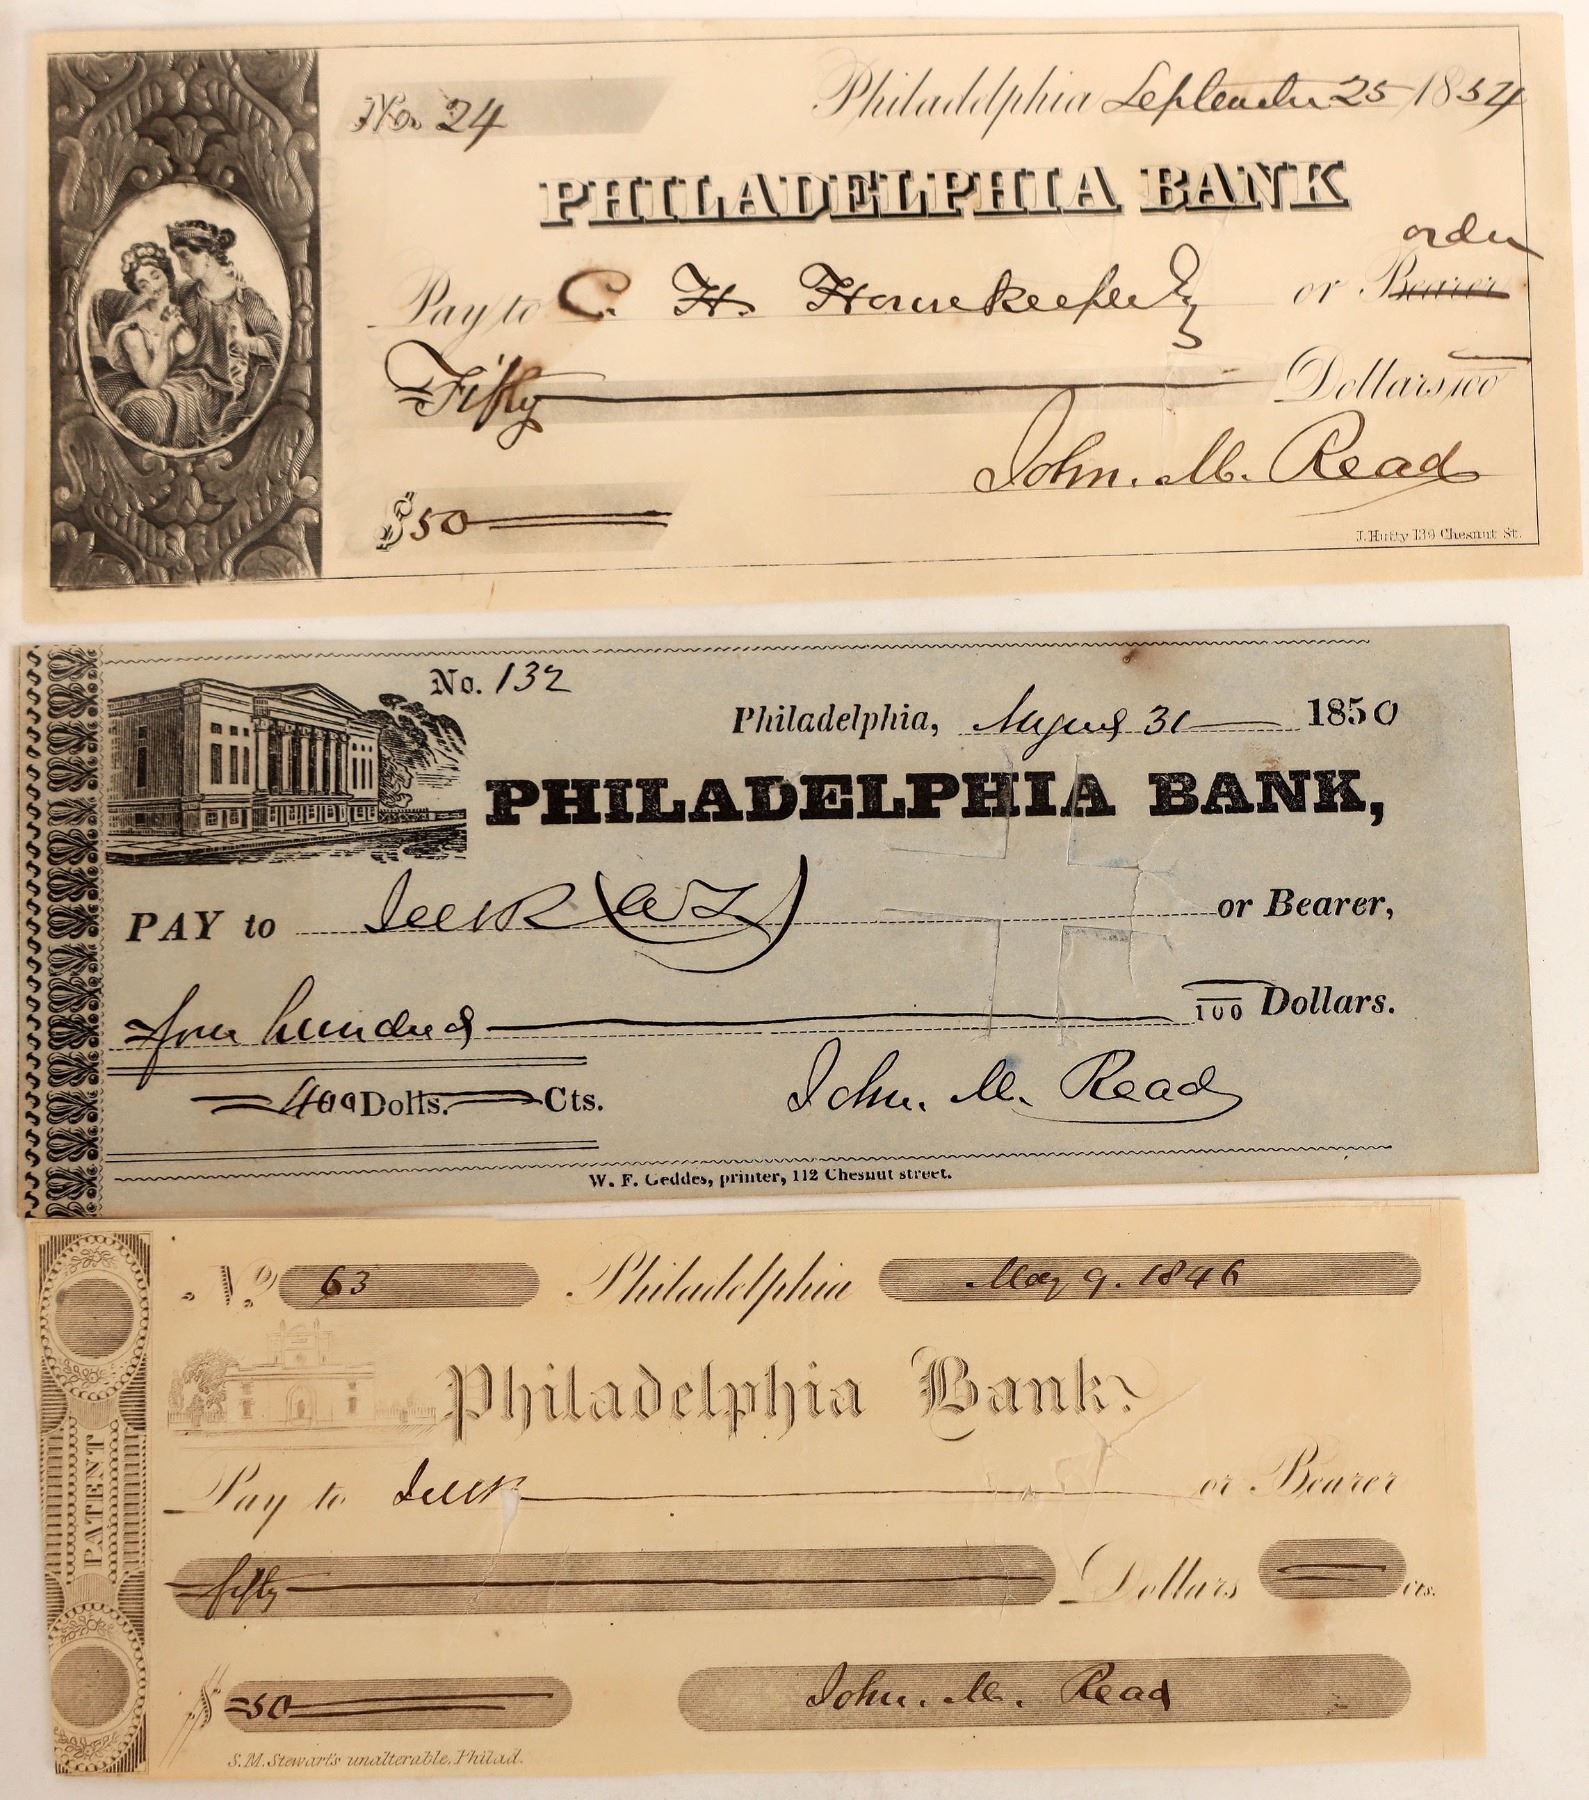 No. 24
Philadelphia September 25 1854
PHILADELPHIA BANK
order
Pay to C. H. Housekeeper or Bearer
Fifty Dollars 100
John. M. Read
$50
J. Hufty 139 Chesnut St.
No. 132
Philadelphia, August 31 1850
PHILADELPHIA BANK,
PAY to or Bearer,
four hundred 100 Dollars.
400 Dolls. Cts.
John. M. Read
W. F. Geddes, printer, 112 Chesnut street.
No. 63 Philadelphia May 9. 1846
Philadelphia Bank.
Pay to or Bearer
PATENT
fifty Dollars cts.
$ 50
John. M. Read
S.M. Stewart's unalterable. Philad.